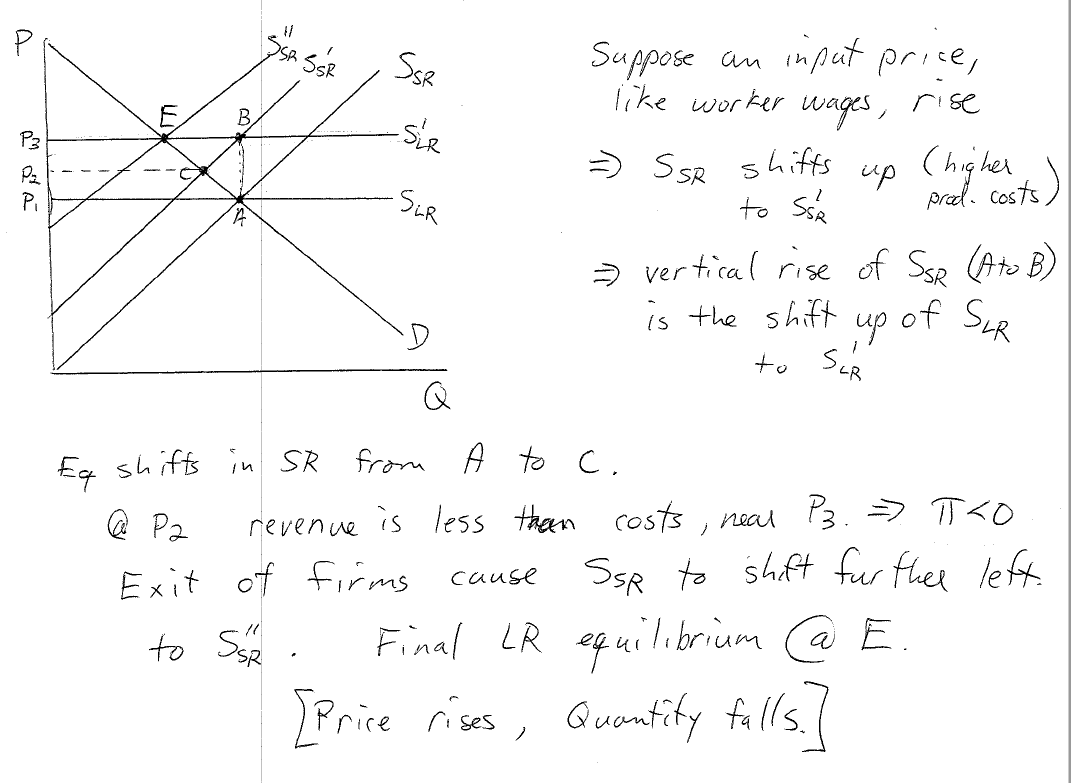 P
S"SR
S'SR
SSR
E
B
P3
S'LR
P2
C
P1
SLR
A
D
Q
Suppose an input price,
like worker wages, rise
⇒ SSR shifts up (higher
prod. costs)
to S'SR
⇒ vertical rise of SSR (A to B)
is the shift up of SLR
to S'LR
Eq shifts in SR from A to C.
@ P2 revenue is less than costs, near P3. ⇒ π<0
Exit of firms cause SSR to shift further left
to S"SR. Final LR equilibrium @ E.
[Price rises, Quantity falls.]